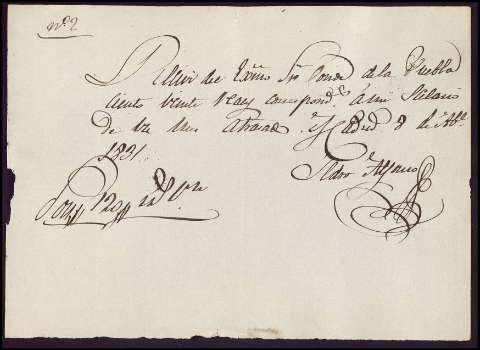 nº 2
Recivi del Exmo Sr Conde de la Puebla
ciento veinte Reales correspond.s á mi Salario
de un mes atrasado. Madrid 8 de Abl
1831.
Alfonso
Son 120 rs Vn